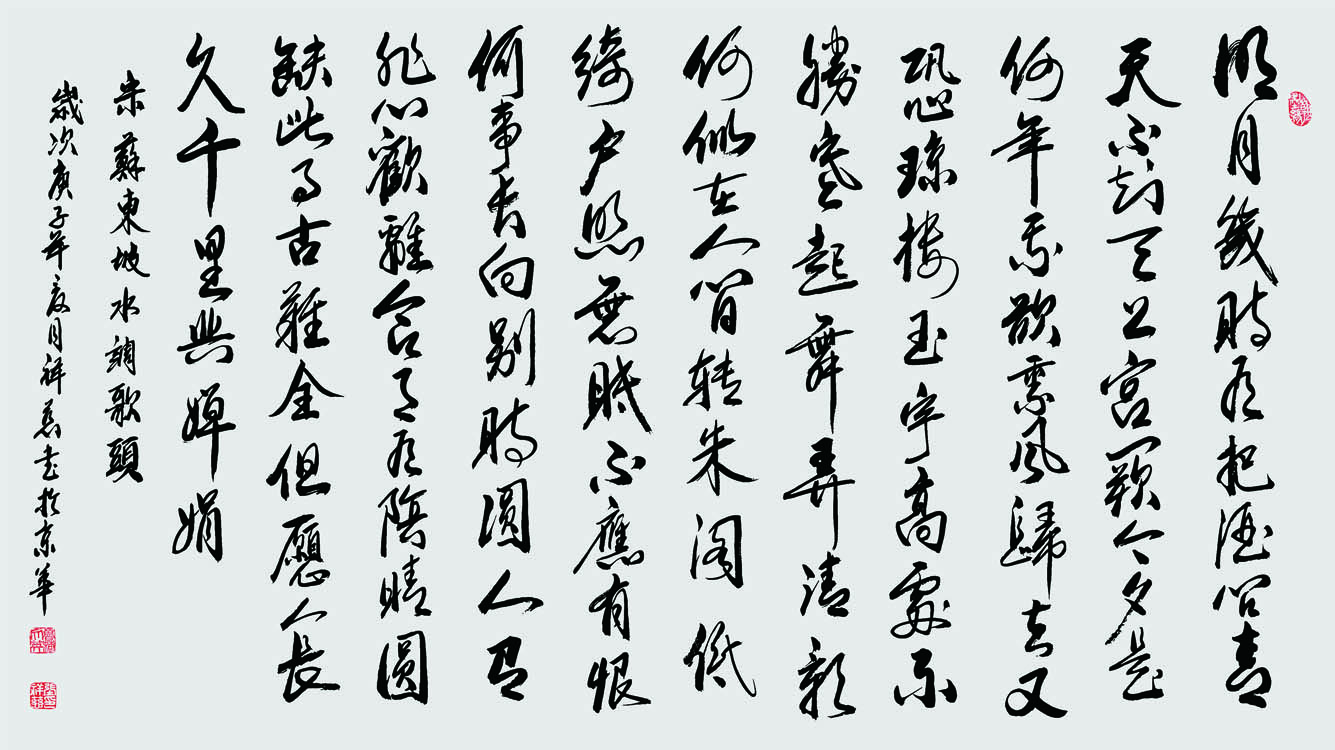 明月幾時有把酒問青
天不知天上宮闕今夕是
何年我欲乘風歸去又
恐瓊樓玉宇高處不
勝寒起舞弄清影
何似在人間轉朱閣低
綺戶照無眠不應有恨
何事長向別時圓人有
悲歡離合月有陰晴圓
缺此事古難全但願人長
久千里與嬋娟
宋蘇東坡水調歌頭
歲次庚子年夏月祥書於京華